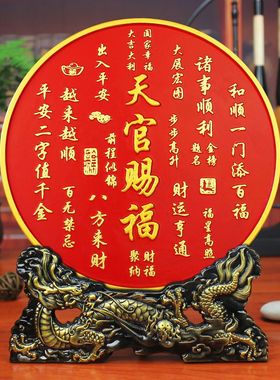 和顺一门添百福
诸事顺利
金榜
题名
福星高照
大展宏图
步步高升
财运亨通
国家幸福
大吉大利
天官赐福
财福
聚纳
前程似锦
八方来财
出入平安
越来越顺
百无禁忌
平安二字值千金